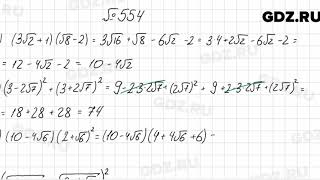 GDZ.RU
№554
) (3√2+1)(√8-2) = 3√16 + √8 - 6√2 - 2 = 3·4 + 2√2 - 6√2 - 2 =
= 12 - 4√2 - 2 = 10 - 4√2
) (3-2√7)² + (3+2√7)² = 9 - 2·3·2√7 + (2√7)² + 9 + 2·3·2√7 + (2√7)² =
= 18 + 28 + 28 = 74
) (10-4√6)(2+√6)² = (10-4√6)(4+4√6+6) =
GDZ.RU